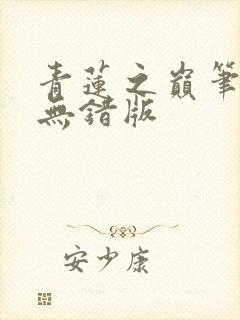 青蓮之巔筆
無錯版
安少康